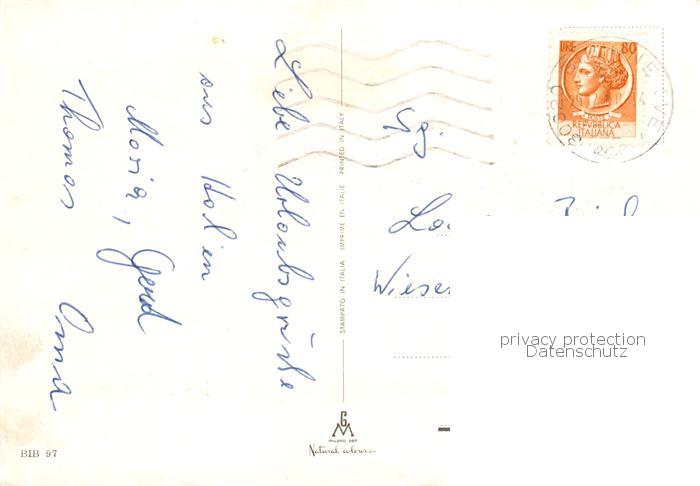 Liebe Urlaubsgrüße
aus Italien
Maria, Gerd
Thomas Oma
STAMPATO IN ITALIA IMPRIMÉ EN ITALIE PRINTED IN ITALY
LIRE 80
POSTE
REPVBBLICA
ITALIANA
Wiese
privacy protection
Datenschutz
GM
MILANO DEP.
Natural colours
BIB 97